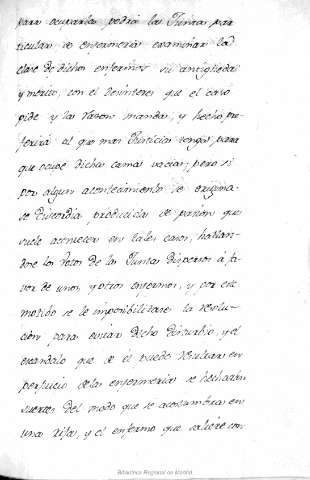 para ocuparlas podrá la Junta par
ticular de enfermeria examinar la
clase de dichos enfermos su antigüedad
y merito, con el desinteres que el caso
pide y la razon manda, y hecho, pre-
ferirá al que mas Justicia tenga para
que ocupe dicha cama vacia; pero si
por algun acontecimiento se origina-
se discordia producida de pasion que
suele acontecer en tales casos, hallan-
dose los votos de la Junta dispersos á fa-
vor de unos, y otros enfermos, y por este
motibo se le imposibilitare la resolu-
cion para evitar dicho disturbio, y el
escandalo que de él puede resultar en
perjuicio de las enfermerias se hecharán
suertes del modo que se acostumbra en
una rifa, y el enfermo que saliere con
Biblioteca Regional de Madrid